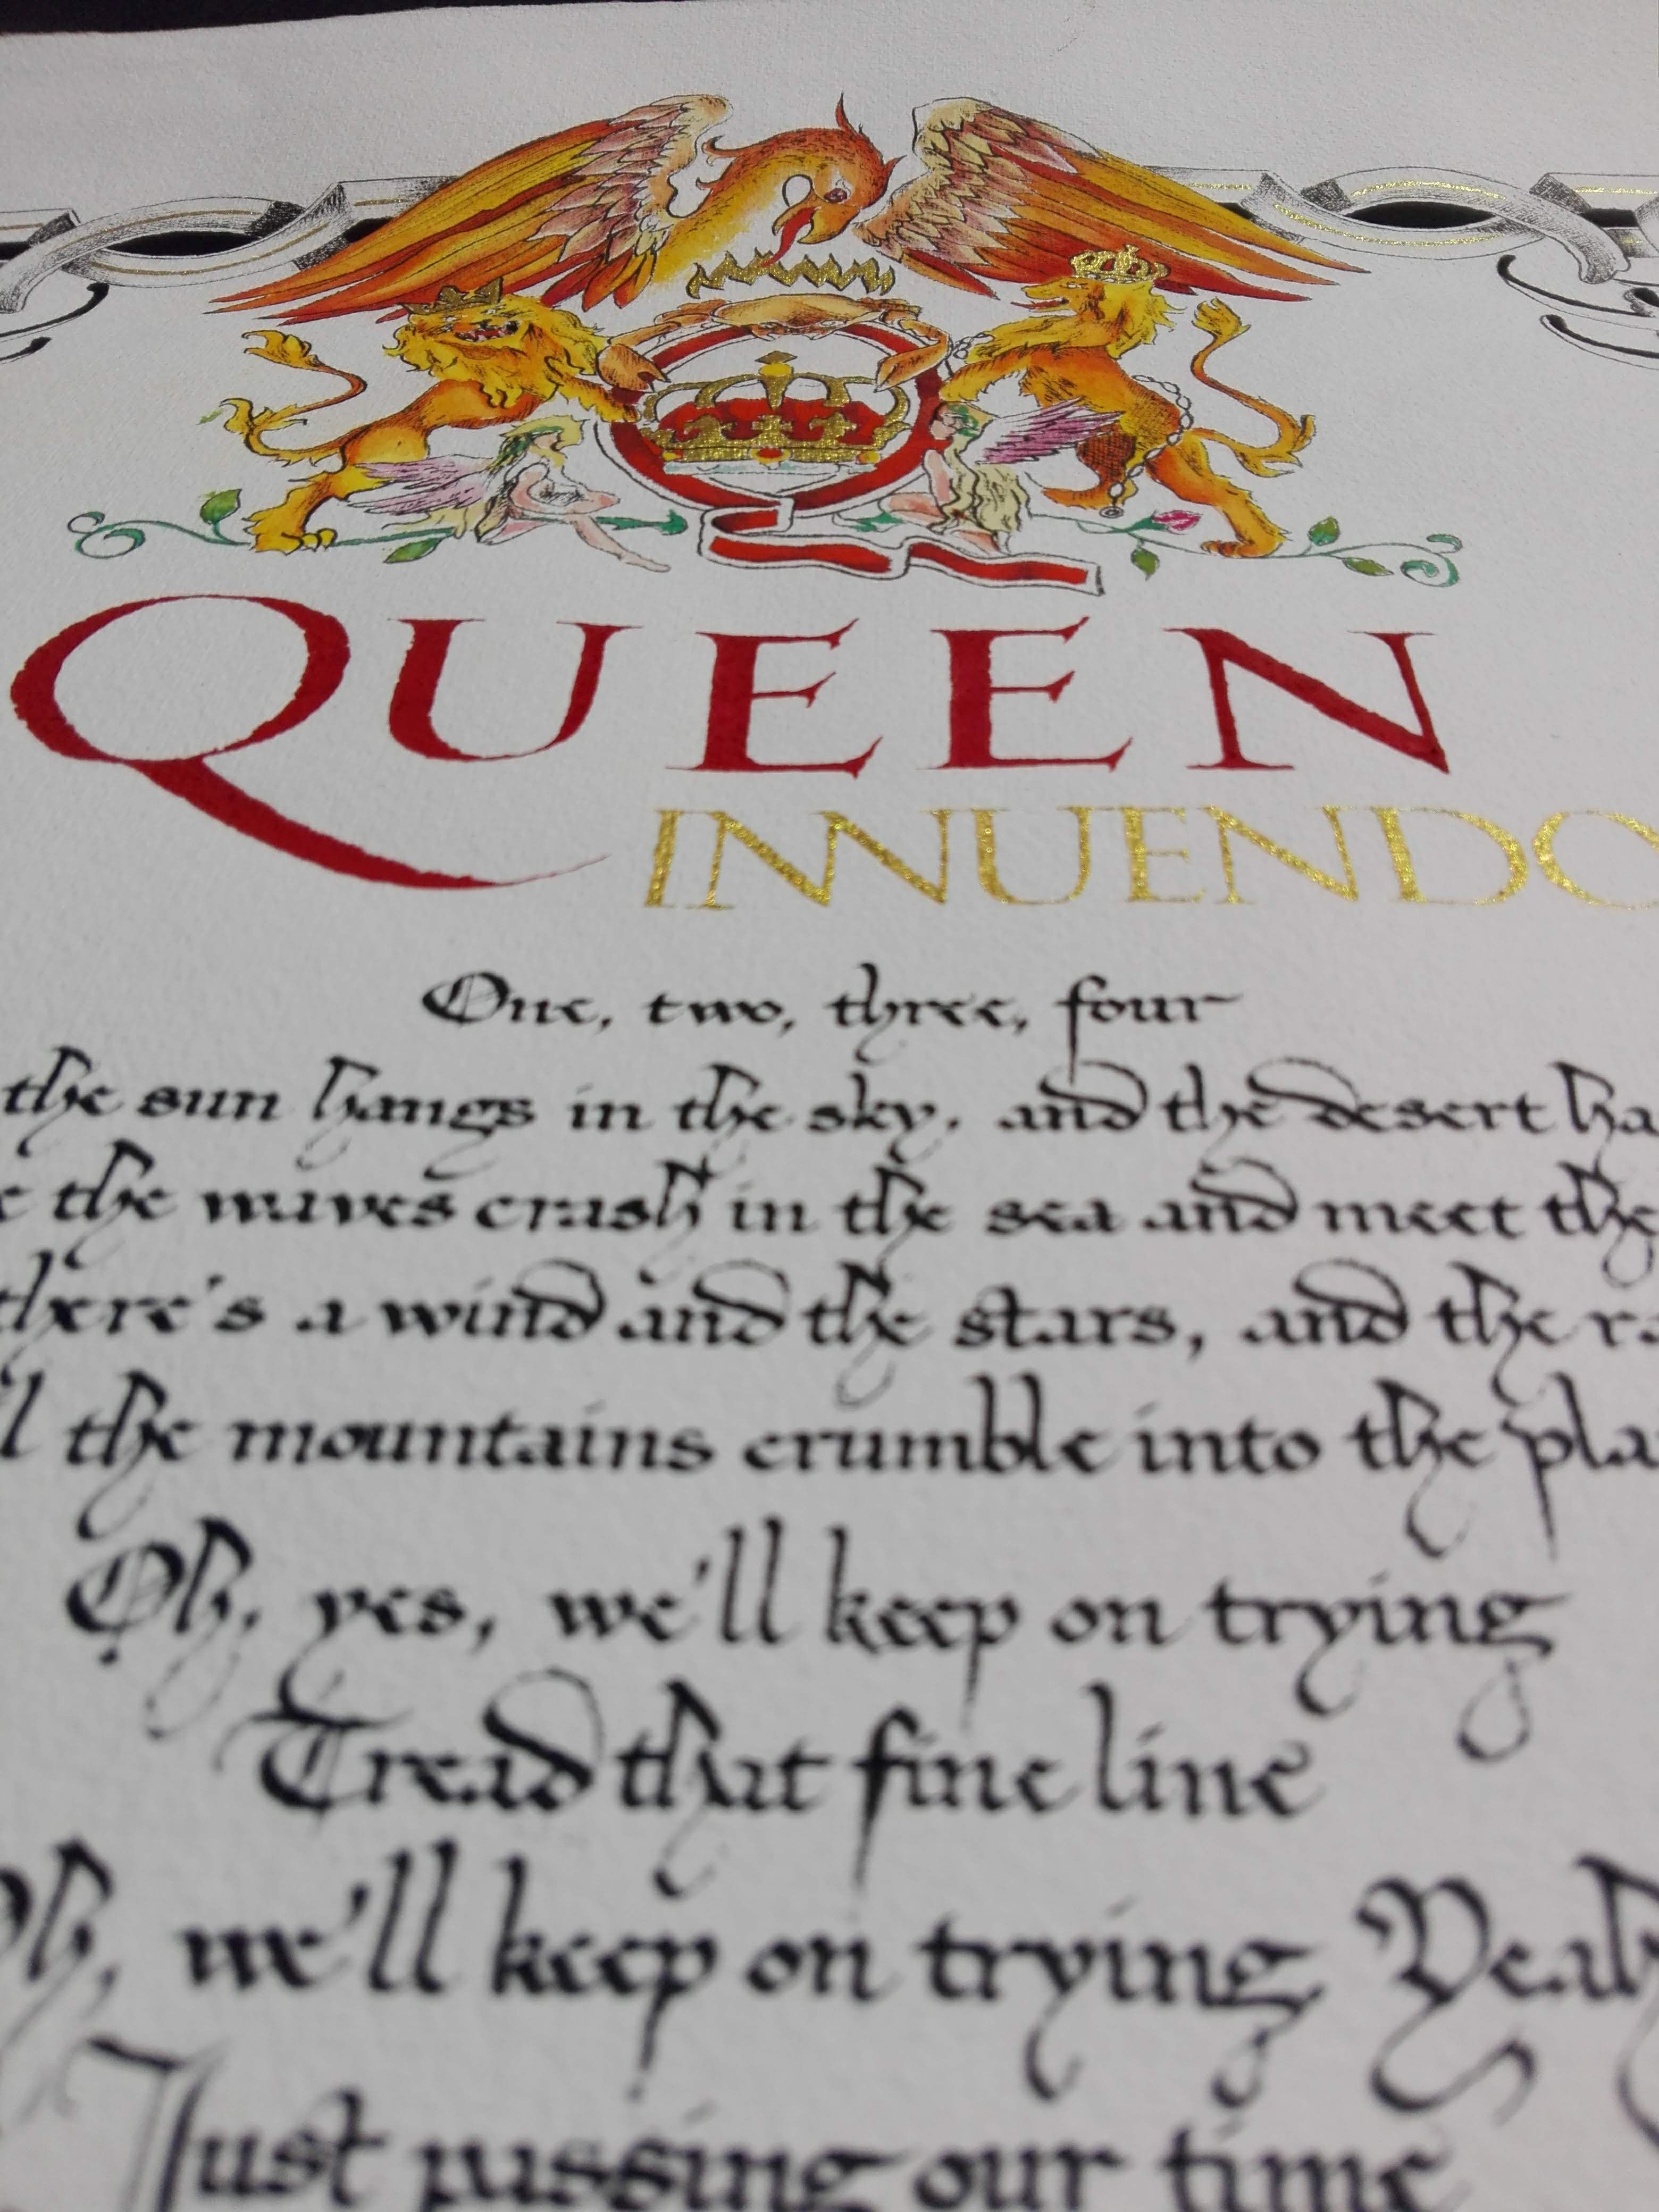 QUEEN
INNUENDO
One, two, three, four
the sun hangs in the sky, and the desert ha
the waves crash in the sea and meet the
there's a wind and the stars, and the ra
the mountains crumble into the pla
Oh, yes, we'll keep on trying
Tread that fine line
Oh, we'll keep on trying Yeah
Just passing our time